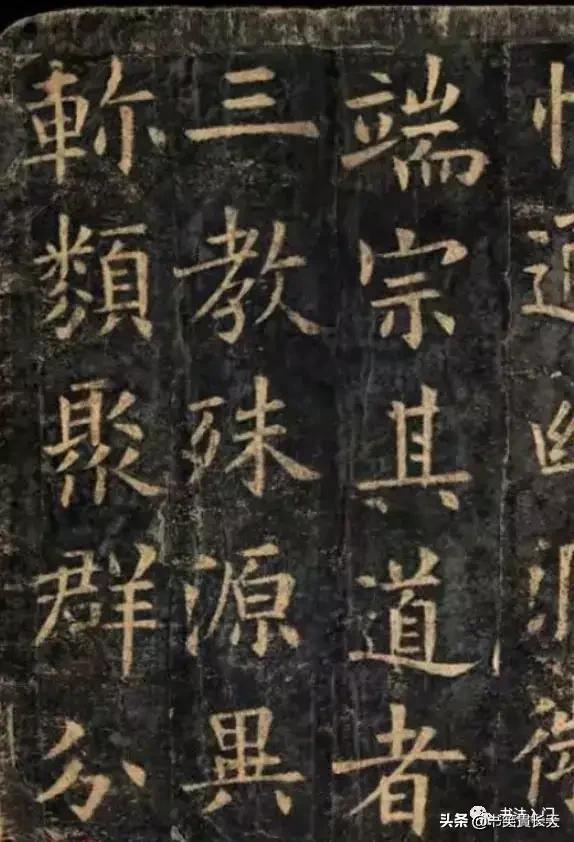 端宗其道者
三教殊源異
軫類聚群分
书法入门
头条